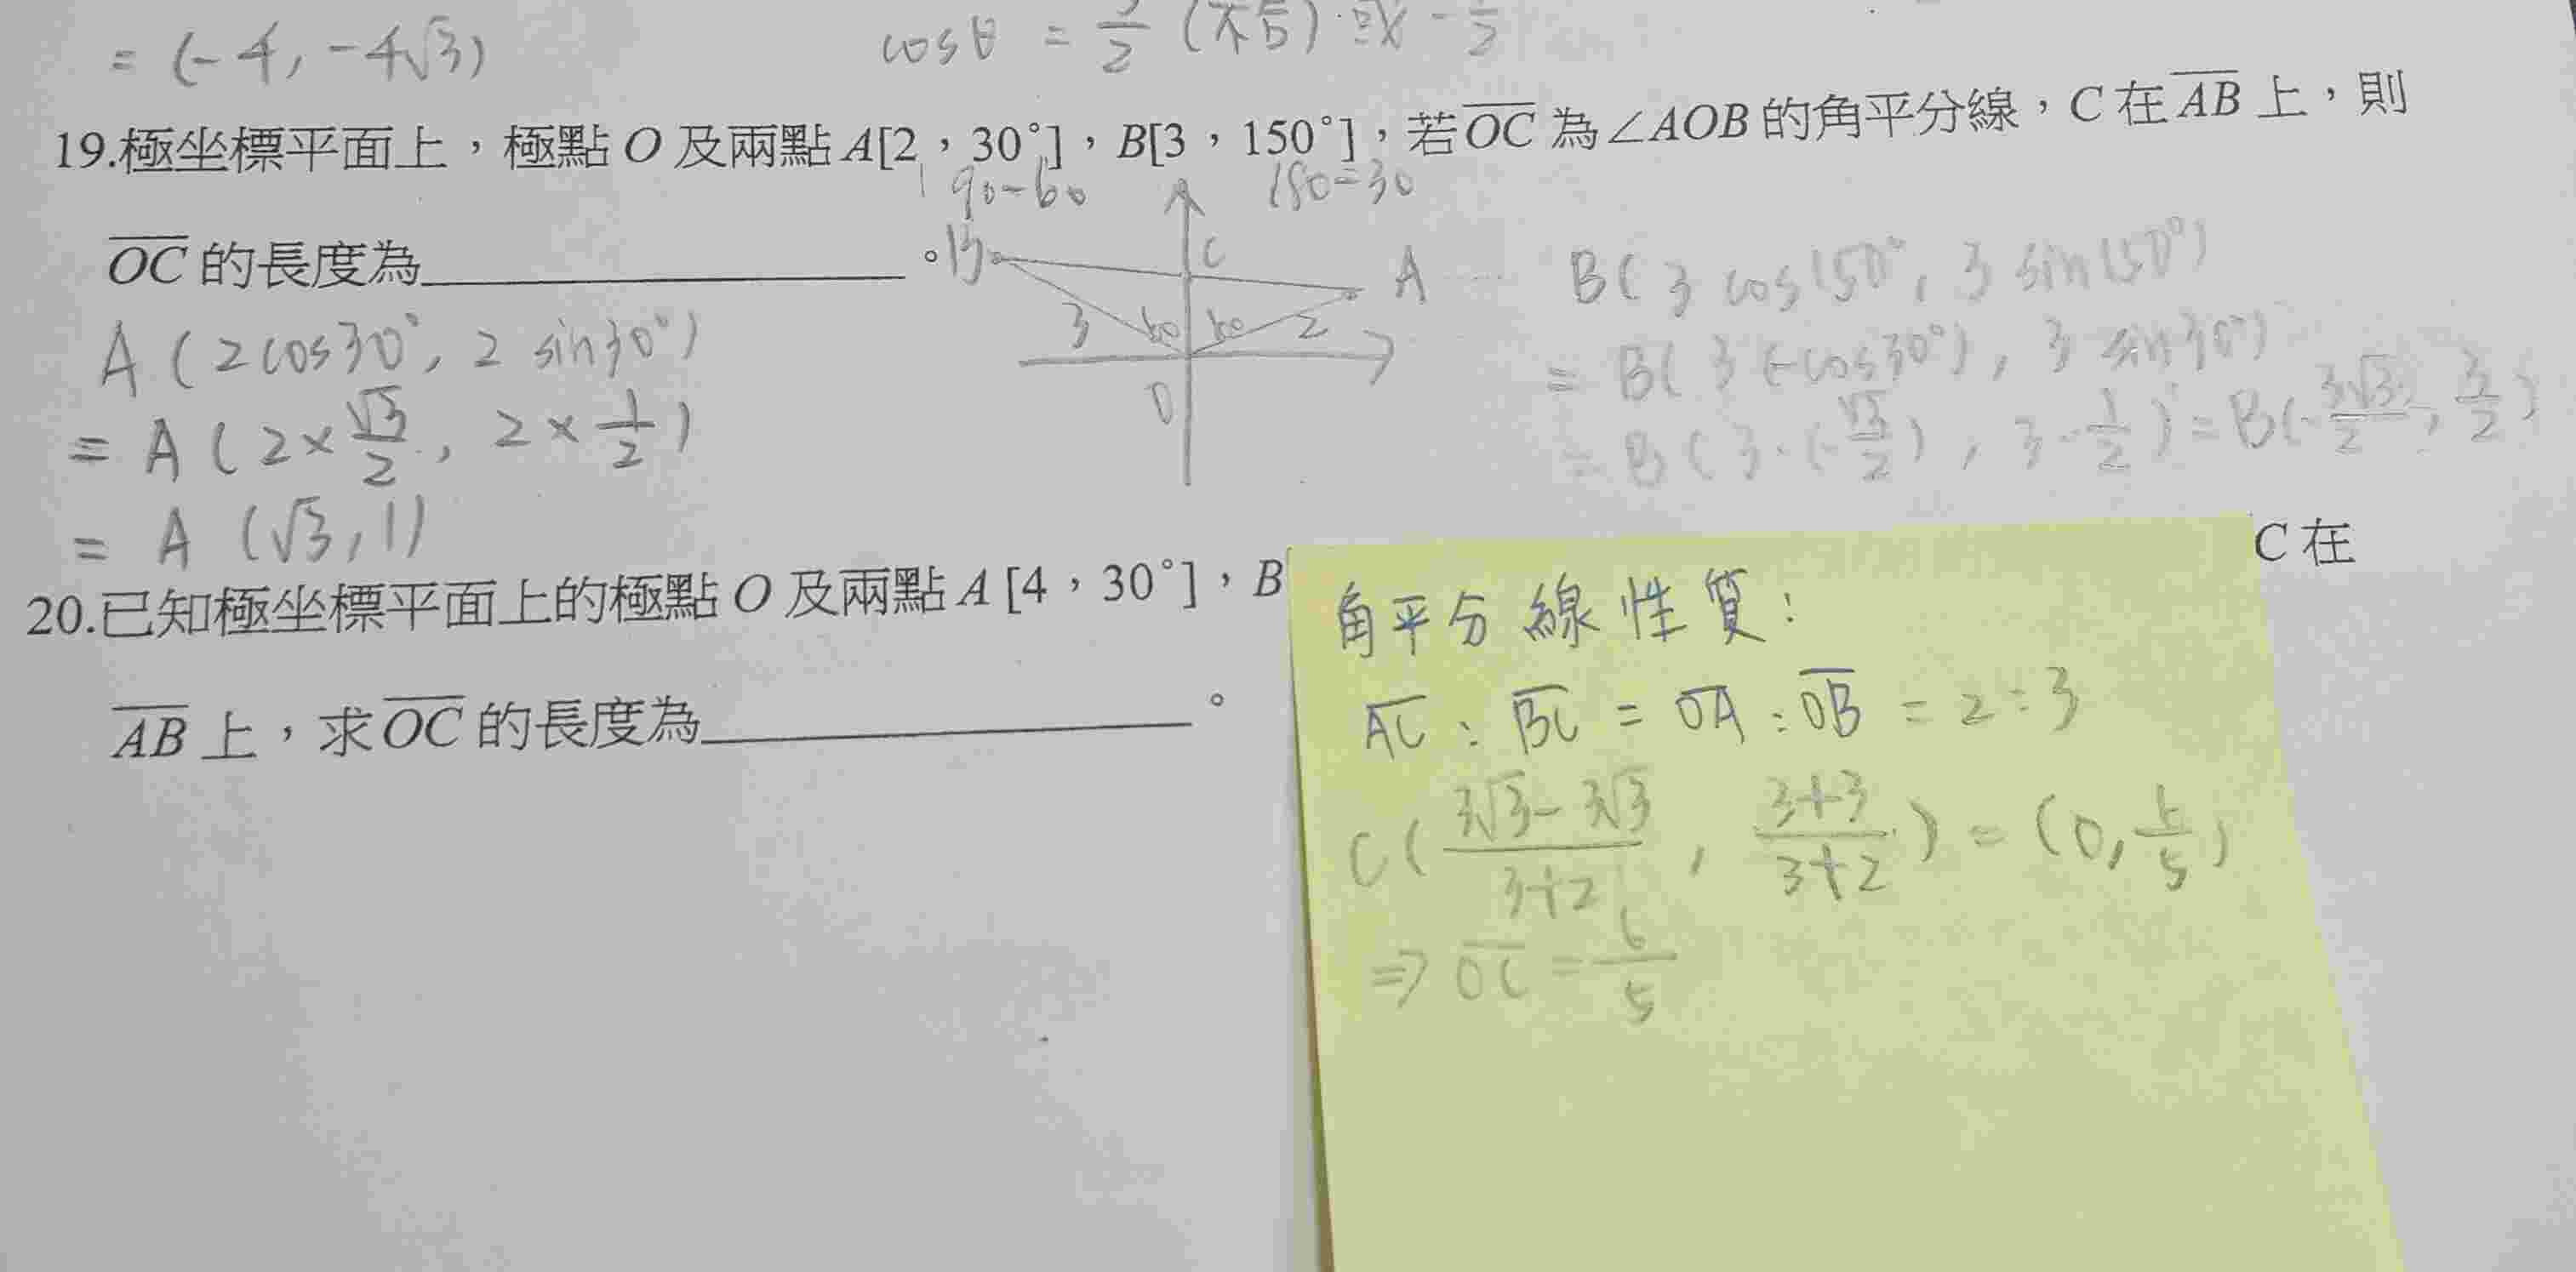 = (-4, -4√3)
cosθ = 3/2 (不合) 或 -1/2
19.極坐標平面上，極點 O 及兩點 A[2，30°]，B[3，150°]，若 OC 為∠AOB 的角平分線，C 在 AB 上，則
90-60
180-30
OC 的長度為__________。
B
C
A
3
60
60
2
O
A ( 2cos30°, 2 sin30° )
= A ( 2 × √3/2 , 2 × 1/2 )
= A (√3, 1)
B( 3 cos150°, 3 sin150° )
= B( 3 (-cos30°), 3 sin30° )
= B ( 3·(-√3/2), 3·1/2 ) = B(-3√3/2, 3/2)
20.已知極坐標平面上的極點 O 及兩點 A [4，30°]，B
C 在
AB 上，求 OC 的長度為__________。
角平分線性質：
AC : BC = OA : OB = 2 : 3
C ( (3√3-3√3)/(3+2) , (3+3)/(3+2) ) = (0, 6/5)
⇒ OC = 6/5